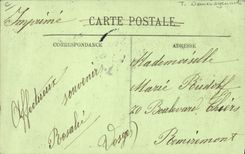 Imprimé
CARTE POSTALE
CORRESPONDANCE
ADRESSE
Affectueux
souvenir
Rosalie
Mademoiselle
Marie
20 Boulevard Thiers
Remiremont
Vosges